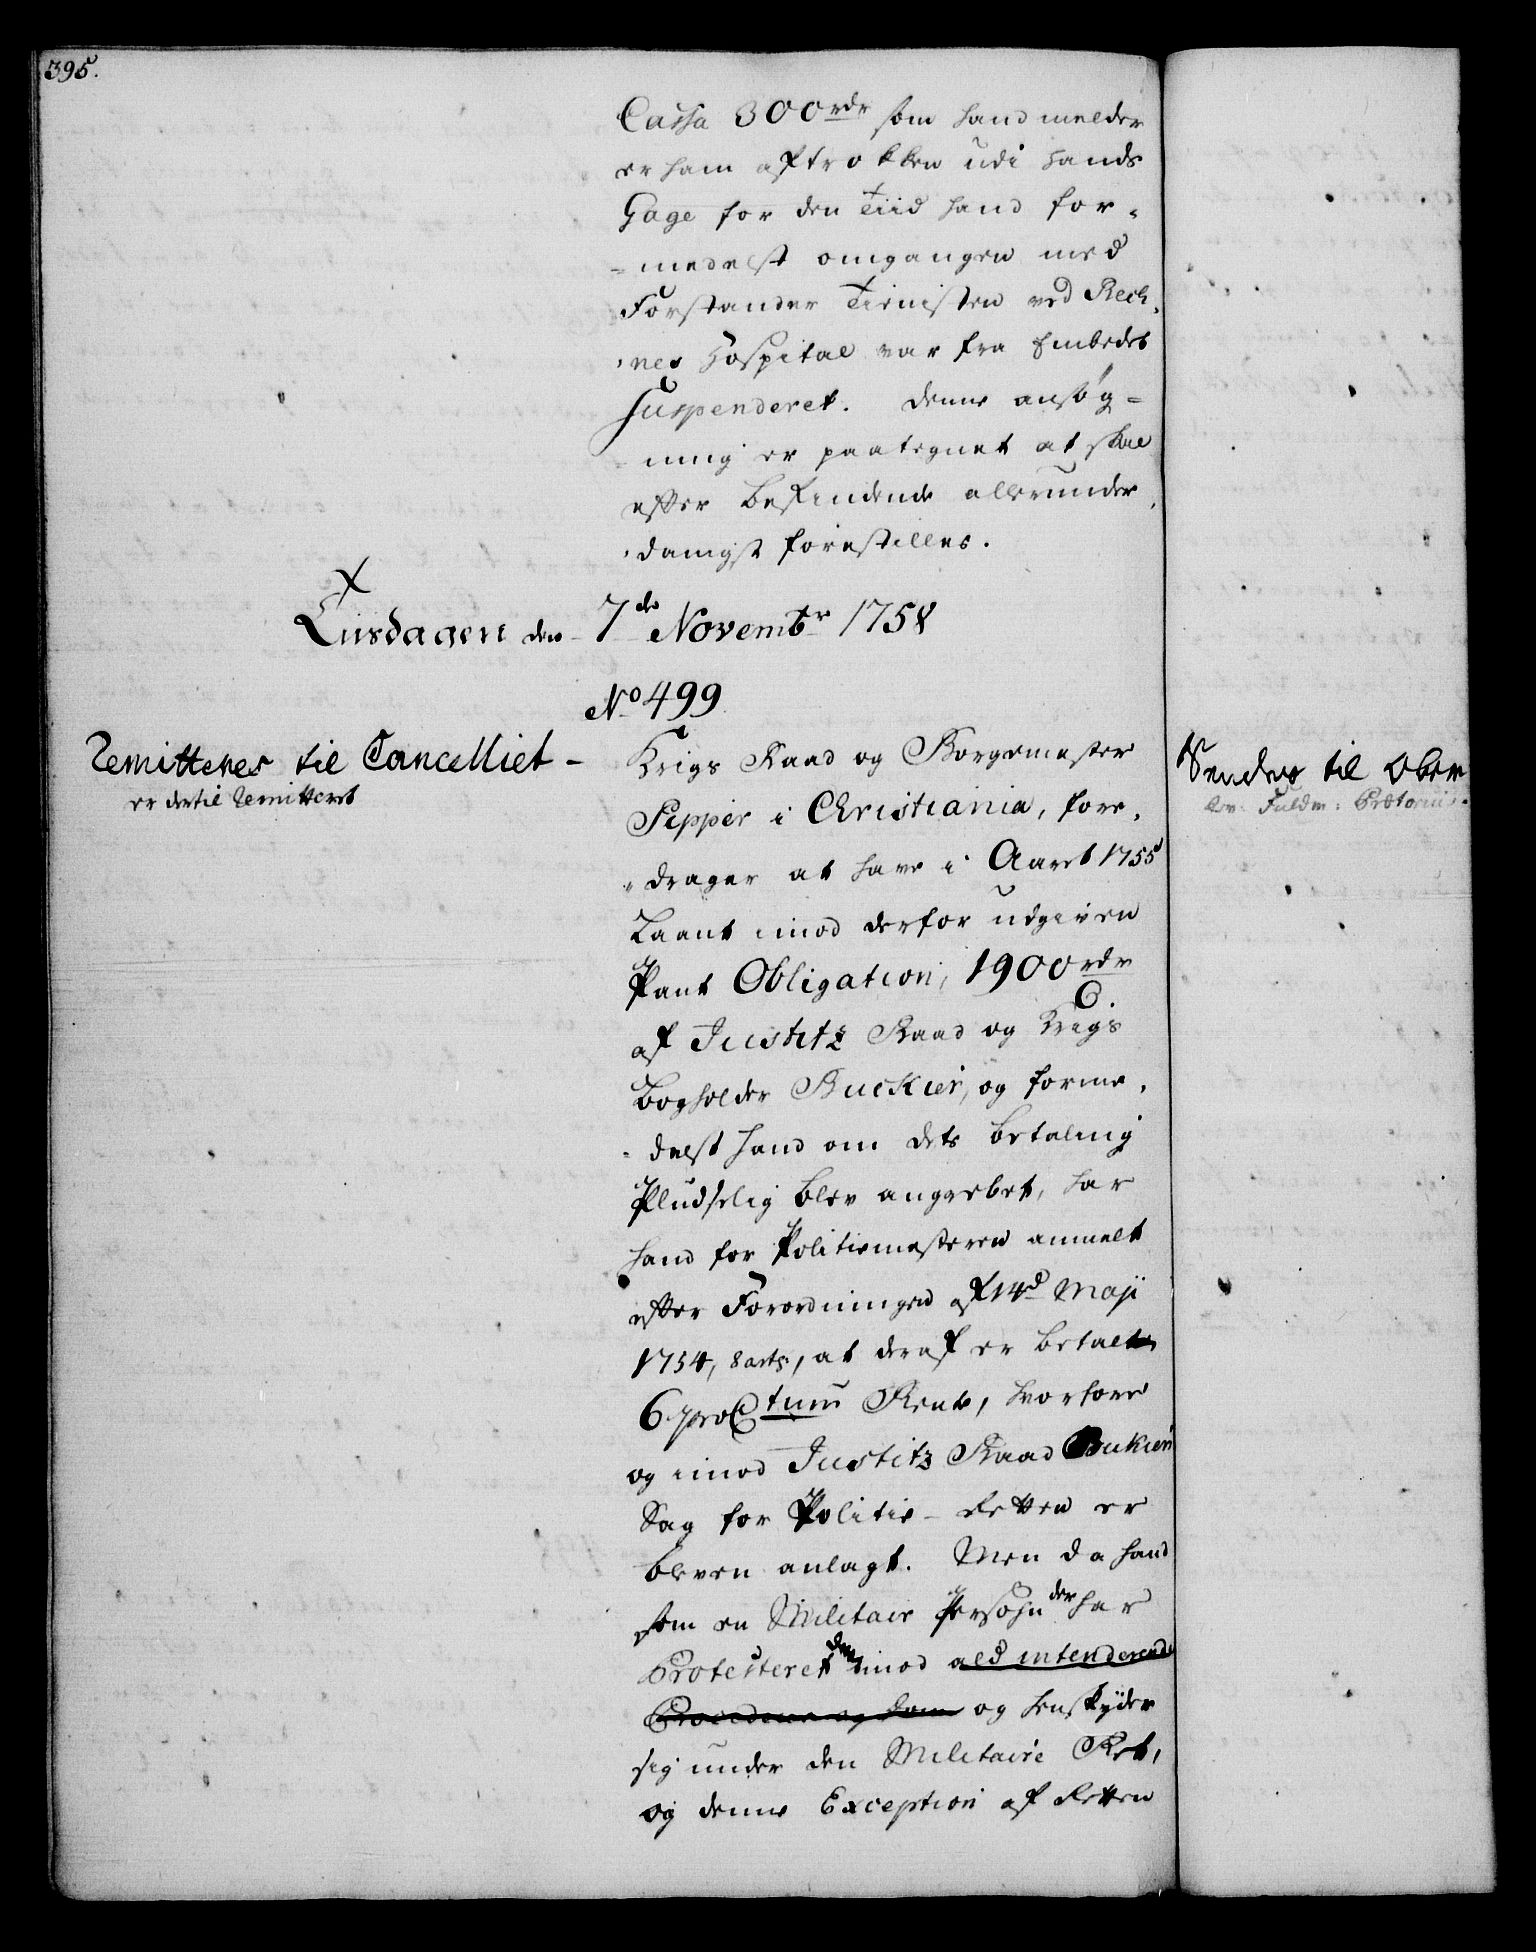 395.
Cassa 300 rdr som hand melder
er ham aftrokken udi hands
Gage for den Tiid hand for-
-medelst omgangen med
Forstander Tienisten ved Rech-
-nes Hospital var fra Embedet
Suspenderet. denne ansøg-
-ning er paategnet at skal
efter befindende allerunder-
-danigst forestilles.
Tiisdagen den 7de Novembr 1758
No 499
Remitteres til Cancelliet -
er dertil Remitteret
Krigs Raad og Borgemester
Pepper i Christiania, fore-
-drager at have i Aaret 1755
Laant imod derfor udgiven
Pant Obligation, 1900 rdr
C.
af Justitz Raad og Krigs
Bogholder Buckier, og forme-
-delst hand om dets betaling
Pludselig blev angrebet, har
hand for Politiemesteren anmelt
efter Forordningen af 14d Maji
1754, 8 art:, at deraf er betalt
6 pro Ctum Rente, hvorfore
og imod Justitz Raad Bukier
Sag for Politie-Retten er
bleven anlagt. Men da hand
som en Militair Persohn der har
Protesteret imod ald intenderende
Procedure og dom og henskyder
sig under den Militaire Ret,
og denne Exception af Retten
Sendes til Ober
Fuldm: Prætorius.